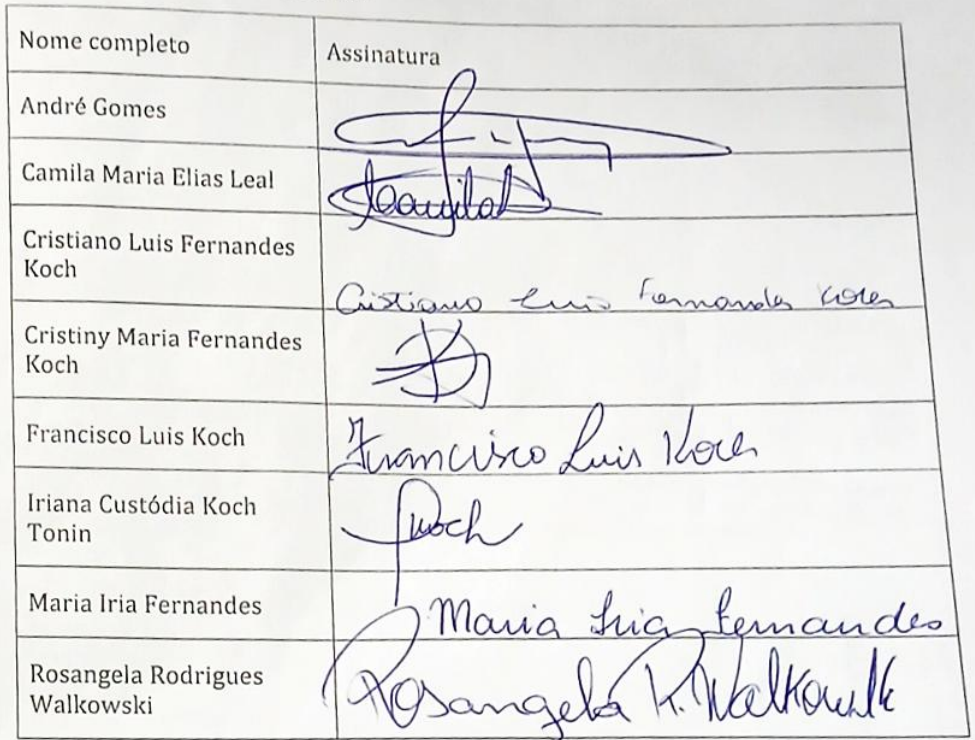 Nome completo Assinatura
André Gomes
Camila Maria Elias Leal
Cristiano Luis Fernandes
Koch
Cristiano Luis Fernandes Koch
Cristiny Maria Fernandes
Koch
Francisco Luis Koch Francisco Luis Koch
Iriana Custódia Koch
Tonin
Koch
Maria Iria Fernandes Maria Iria Fernandes
Rosangela Rodrigues
Walkowski
Rosangela R. Walkowsk